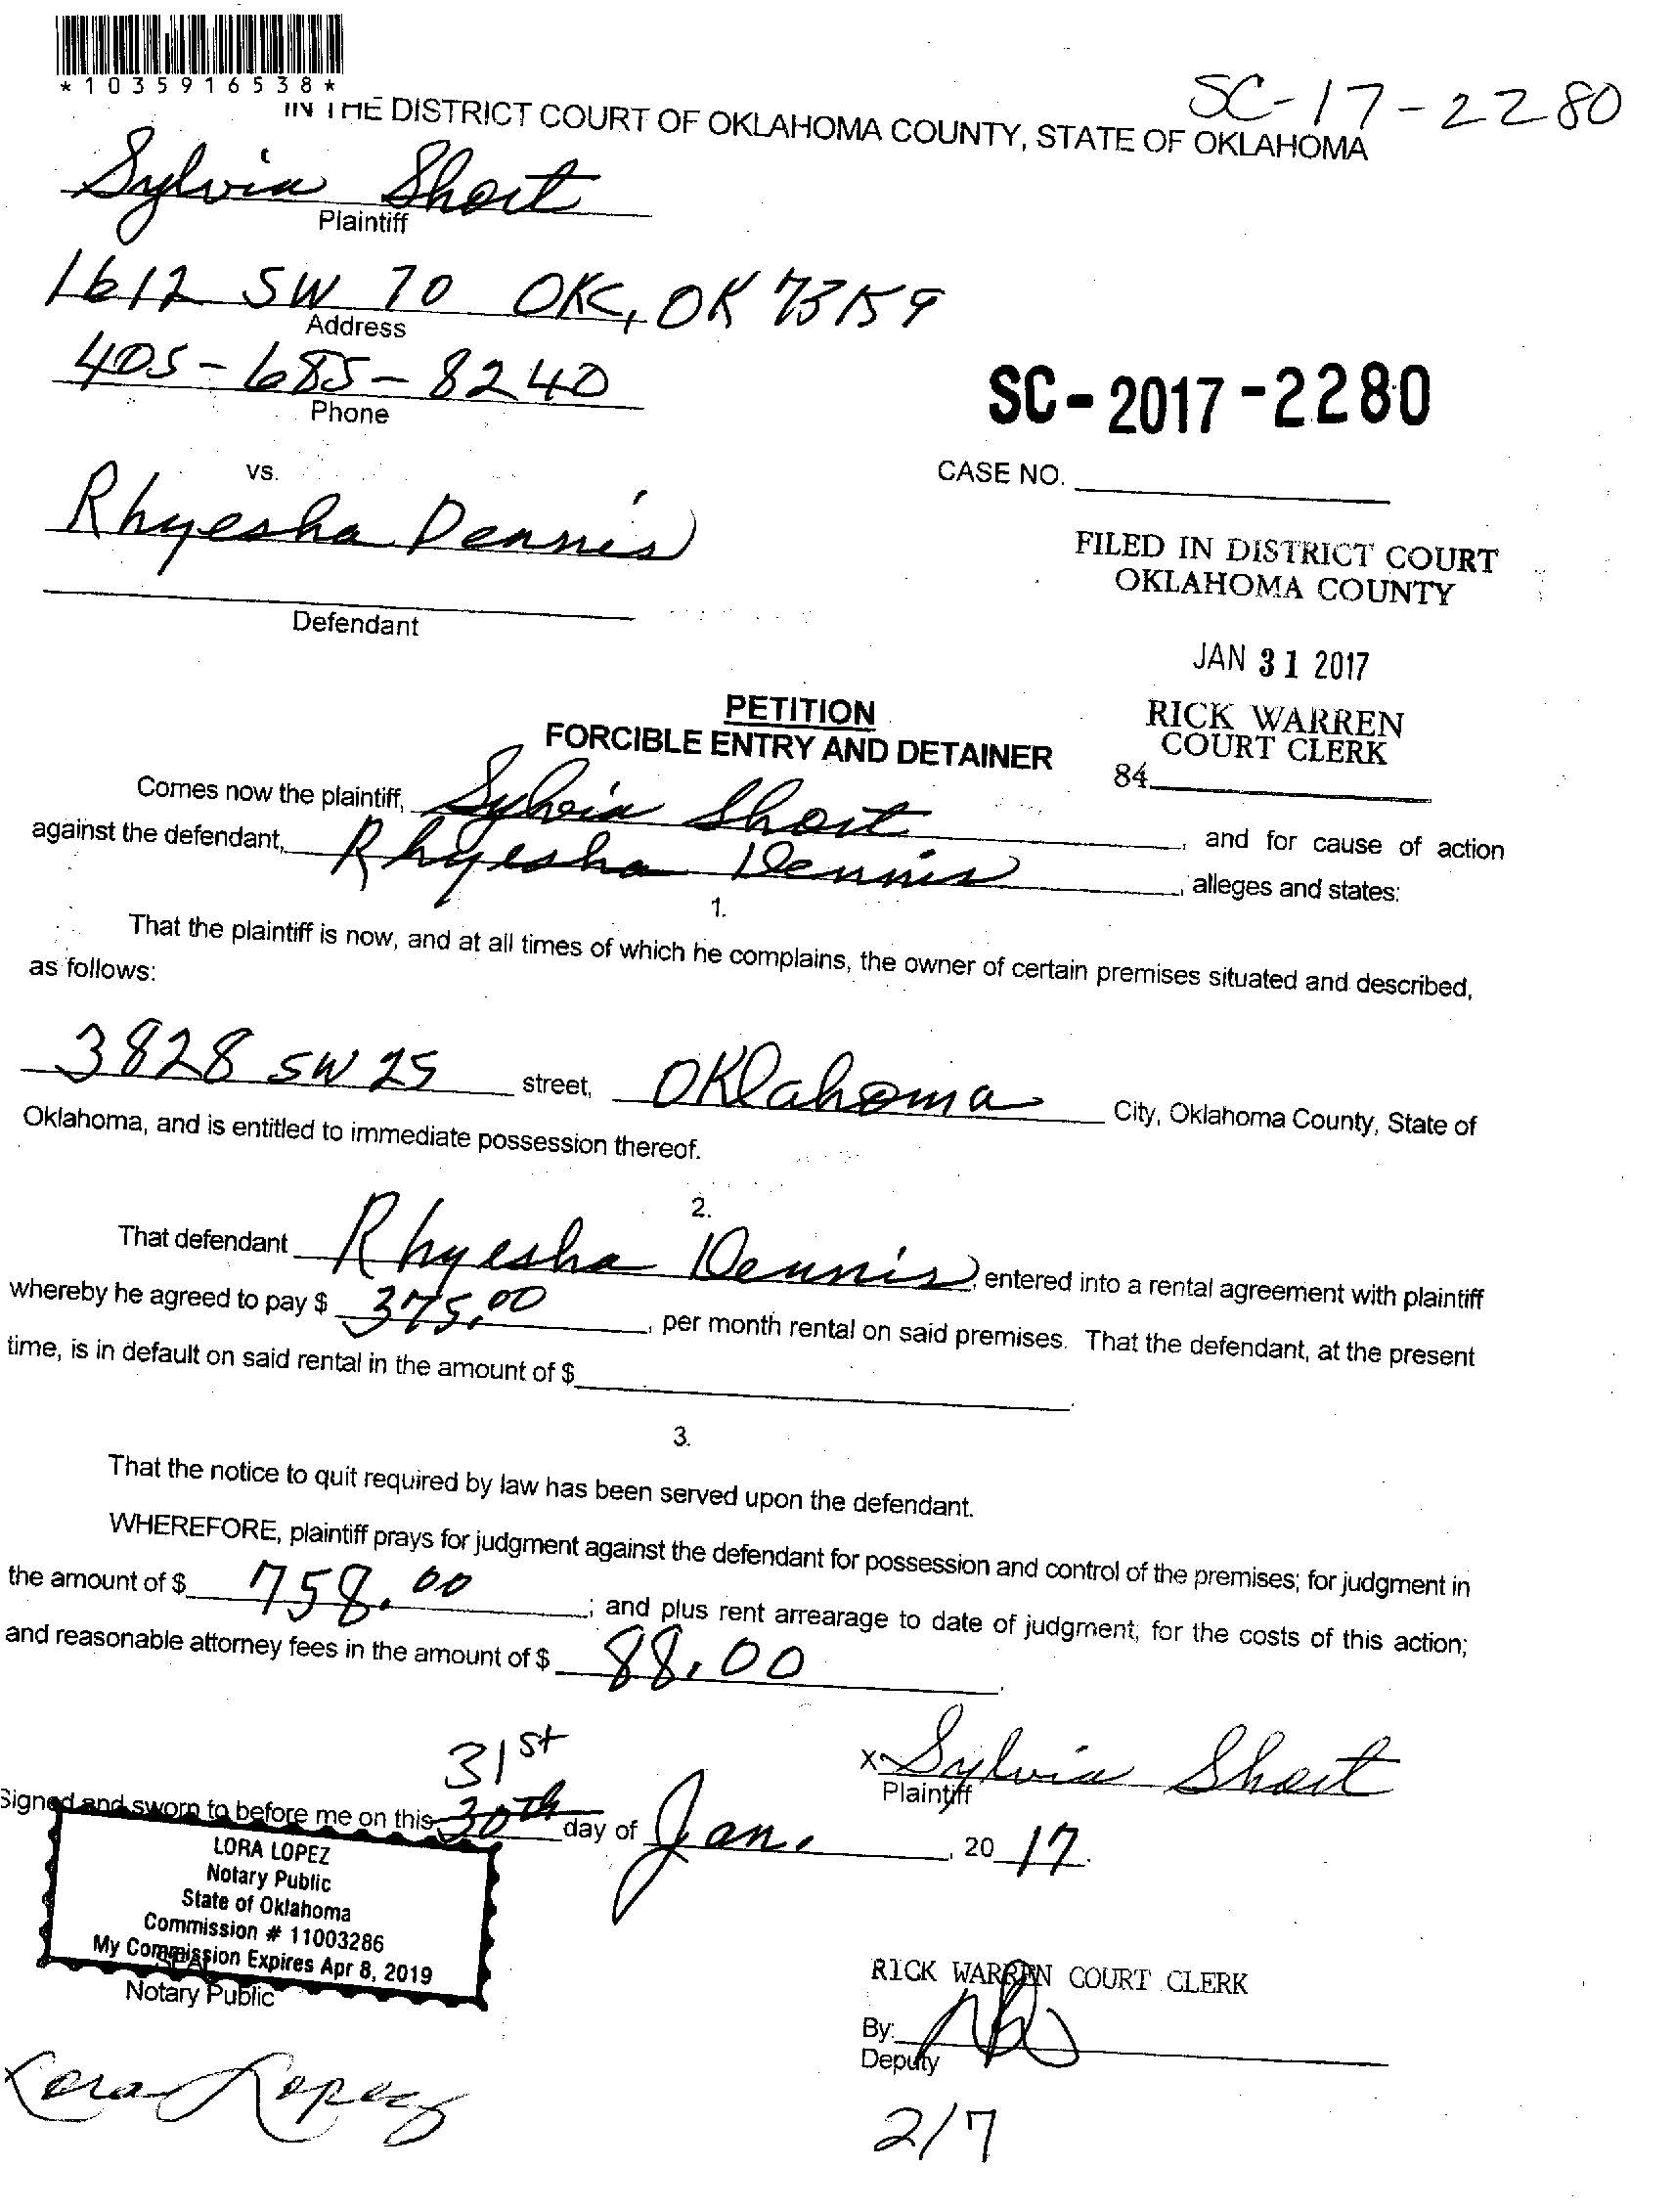 *1035916538*
SC-17-2280
IN THE DISTRICT COURT OF OKLAHOMA COUNTY, STATE OF OKLAHOMA
Sylvia Short
Plaintiff
1612 SW 70 OKC, OK 73159
Address
405-685-8240
Phone
SC-2017-2280
vs.
CASE NO.
Rhyesha Dennis
FILED IN DISTRICT COURT
OKLAHOMA COUNTY
Defendant
JAN 31 2017
PETITION
FORCIBLE ENTRY AND DETAINER
RICK WARREN
COURT CLERK
84
Comes now the plaintiff, Sylvia Short and for cause of action
against the defendant, Rhyesha Dennis, alleges and states:
1.
That the plaintiff is now, and at all times of which he complains, the owner of certain premises situated and described,
as follows:
3828 SW 25 street, Oklahoma City, Oklahoma County, State of
Oklahoma, and is entitled to immediate possession thereof.
2.
That defendant Rhyesha Dennis, entered into a rental agreement with plaintiff
whereby he agreed to pay $ 375.00, per month rental on said premises. That the defendant, at the present
time, is in default on said rental in the amount of $ .
3.
That the notice to quit required by law has been served upon the defendant.
WHEREFORE, plaintiff prays for judgment against the defendant for possession and control of the premises; for judgment in
the amount of $ 758.00; and plus rent arrearage to date of judgment; for the costs of this action;
and reasonable attorney fees in the amount of $ 88.00.
31st
x Sylvia Short
Plaintiff
Signed and sworn to before me on this 30th day of Jan., 20 17.
LORA LOPEZ
Notary Public
State of Oklahoma
Commission # 11003286
My Commission Expires Apr 8, 2019
Notary Public
RICK WARREN COURT CLERK
By:
Deputy
Lora Lopez
2/7